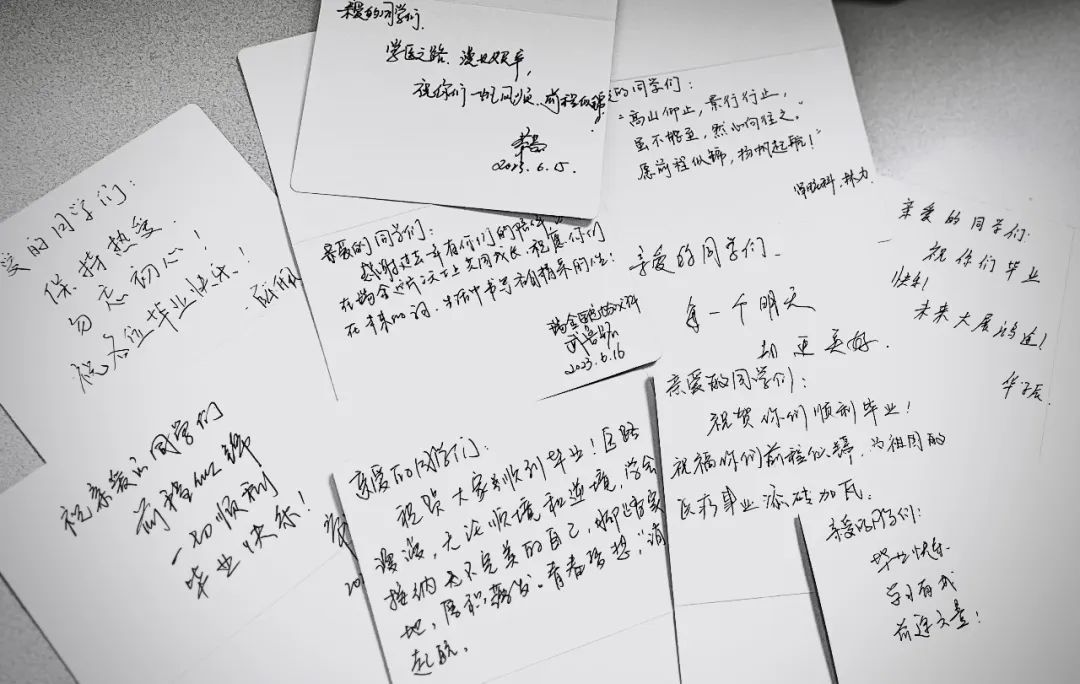 亲爱的同学们：
学医之路，漫
祝你们一帆风顺，前程似锦！
2023.6.15
的同学们：
“高山仰止，景行行止，
虽不能至，然心向往之。”
愿前程似锦，扬帆起航！
林力
爱的同学们：
保持热爱
勿忘初心！
祝各位毕业快乐！
亲爱的同学们：
感谢过去一年有你们的陪伴。
在瑞金这片沃土上共同成长，祝愿你们
在未来的 生活中书写 精彩的
瑞金医院
2023.6.16
亲爱的同学们
每一个明天
都更美好。
亲爱的同学们：
祝你们毕业
快乐！
未来大展鸿途！
祝亲爱的同学们
前程似锦
一切顺利
毕业快乐！
20
亲爱的同学们：
祝贺大家顺利毕业！医路
漫漫，无论顺境和逆境，学会
接纳不完美的自己，脚踏实
地，厚积薄发。青春
起航。
亲爱的同学们：
祝贺你们顺利毕业！
祝福你们前程似锦，为祖国的
医疗事业添砖加瓦。
亲爱的同学们：
毕业快乐
学习有成
前途无量！